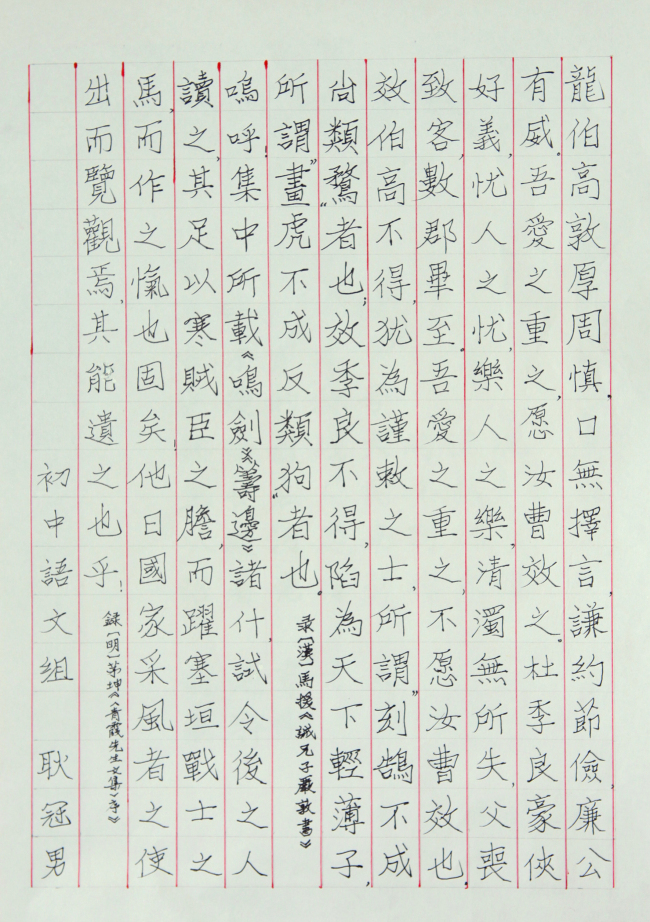 龍伯高敦厚周慎,口無擇言,謙約節儉,廉公
有威。吾愛之重之,愿汝曹效之。杜季良豪俠
好義,忧人之忧,樂人之樂,清濁無所失,父喪
致客,數郡畢至。吾愛之重之,不愿汝曹效也。
效伯高不得,犹為謹敕之士,所謂“刻鵠不成
尚類鶩”者也;效季良不得,陷為天下輕薄子,
所謂“畫虎不成反類狗”者也。
录〔漢〕馬援《誡兄子嚴敦書》
嗚呼!集中所載《鳴劍》《籌邊》諸什,試令後之人
讀之,其足以寒賊臣之膽,而躍塞垣戰士之
馬,而作之愾也固矣!他日國家采風者之使
出而覽觀焉,其能遺之也乎!
録〔明〕茅坤《〈青霞先生文集〉序》
初中語文組 耿冠男